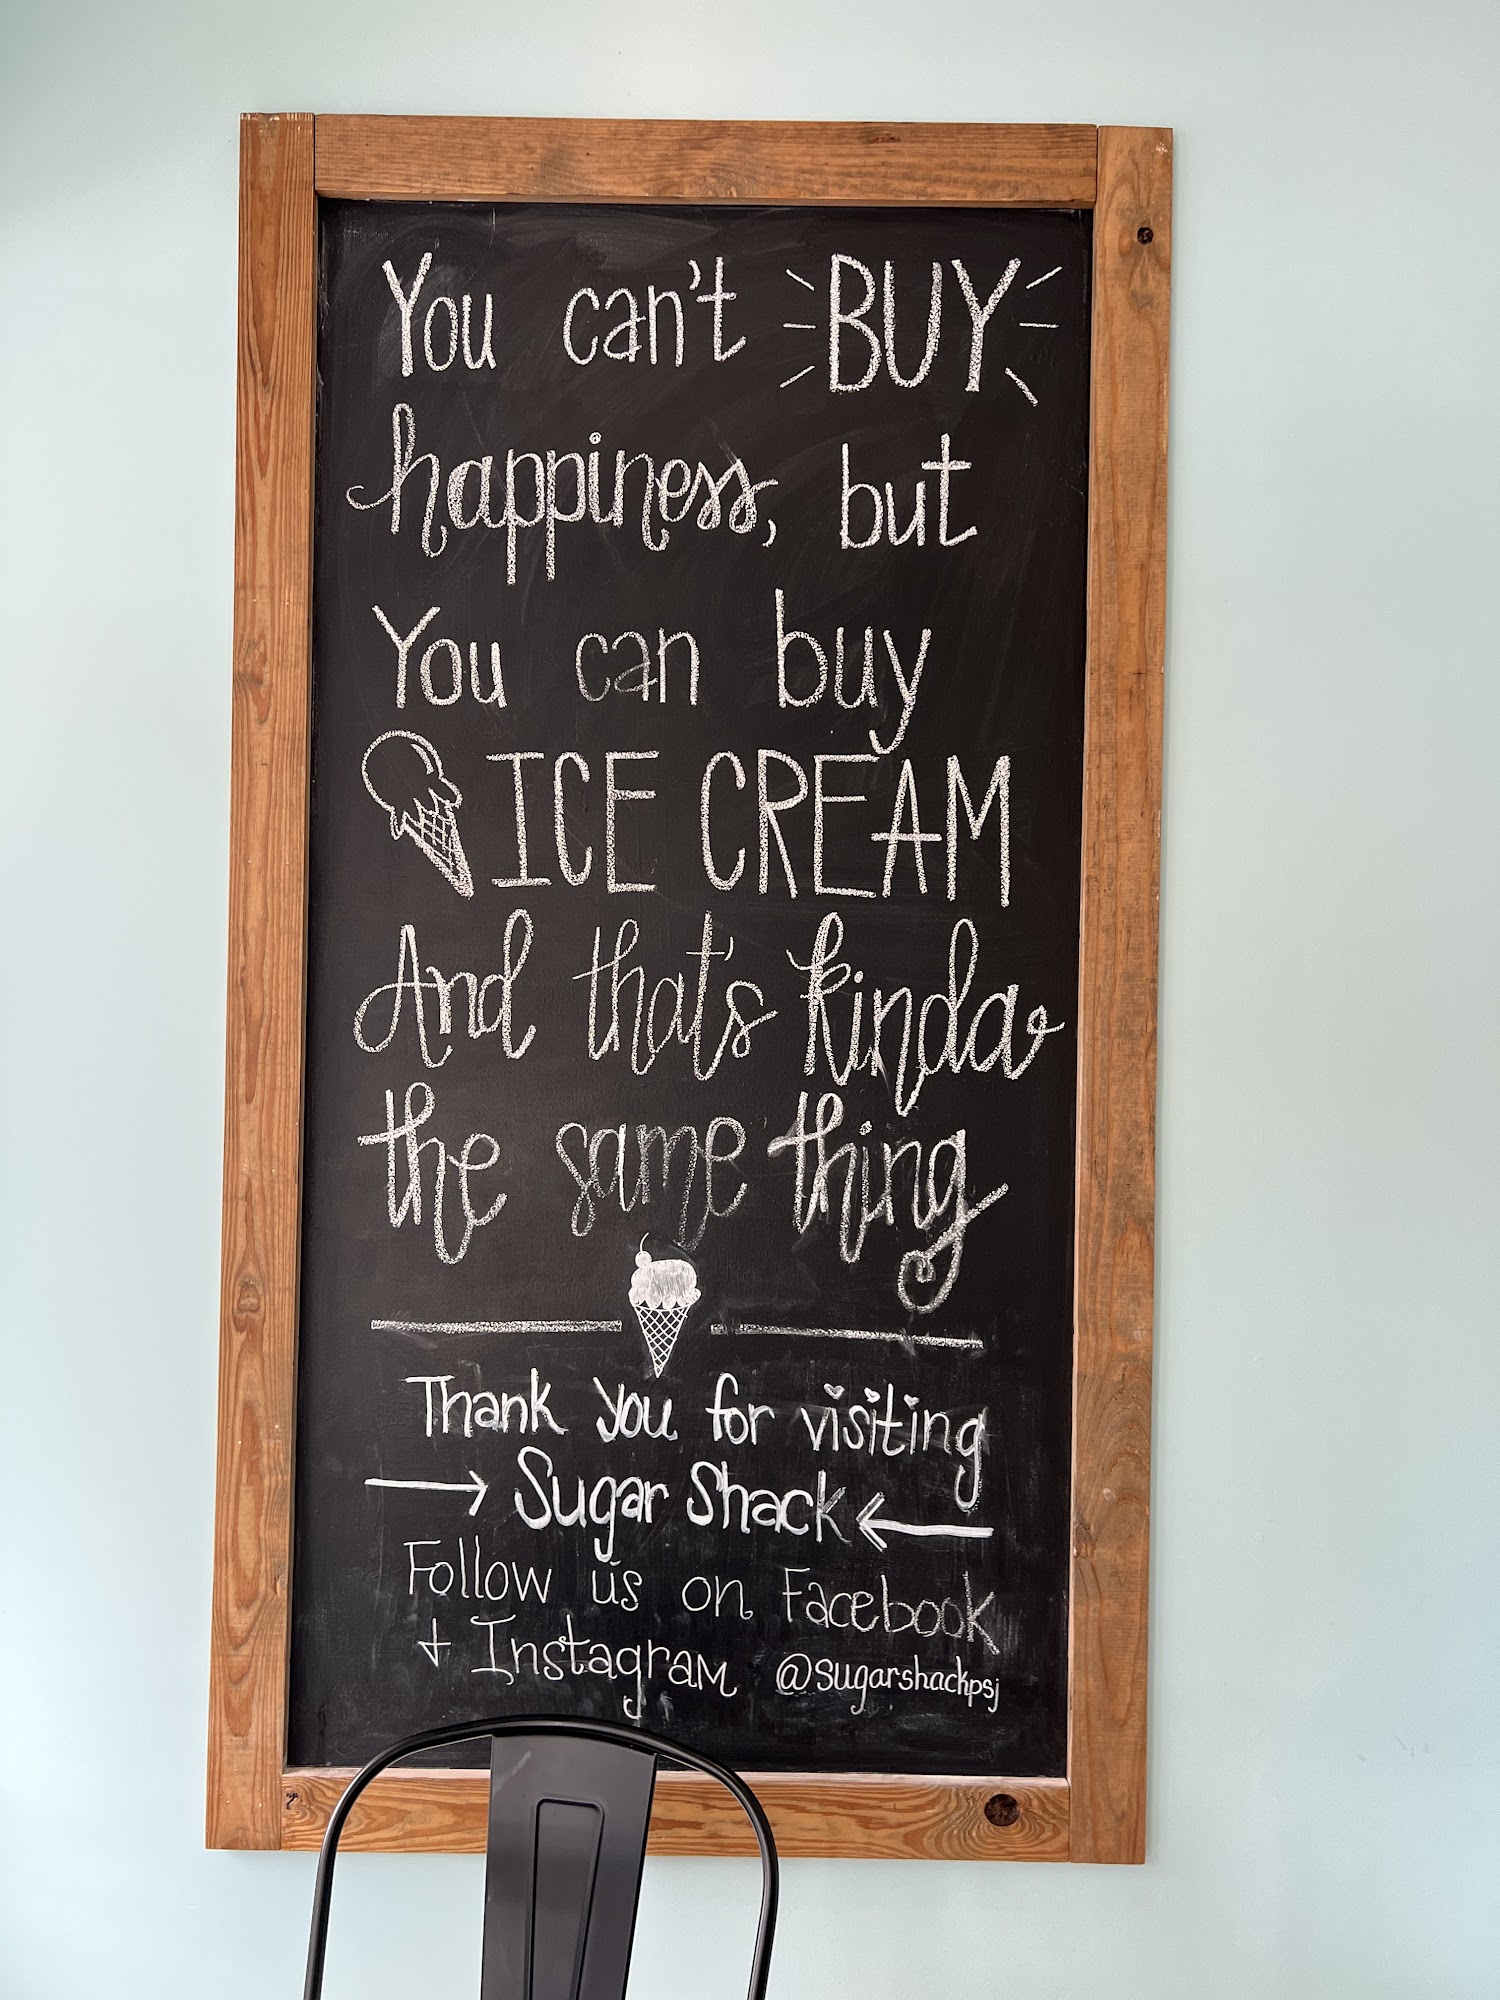 You can't BUY
happiness, but
You can buy
ICE CREAM
And that's kinda
the same thing
Thank you for visiting
Sugar Shack
Follow us on Facebook
+ Instagram @sugarshackpsj